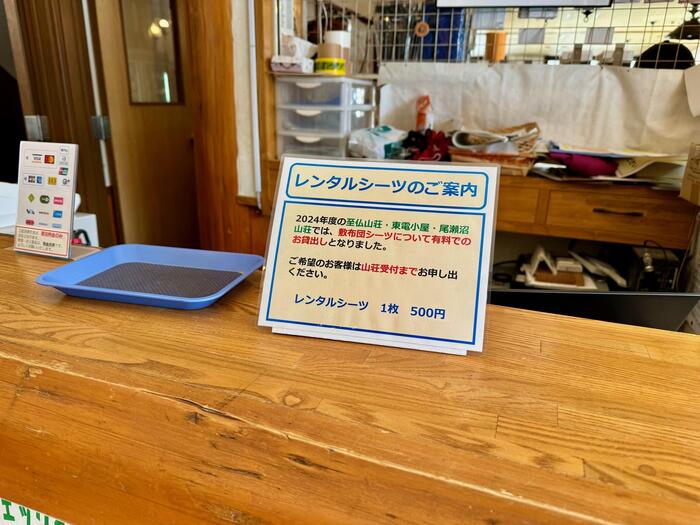 レンタルシーツのご案内
2024年度の至仏山荘・東電小屋・尾瀬沼
山荘では、敷布団シーツについて有料での
お貸出しとなりました。
ご希望のお客様は山荘受付までお申し出
ください。
レンタルシーツ 1枚 500円
VISA